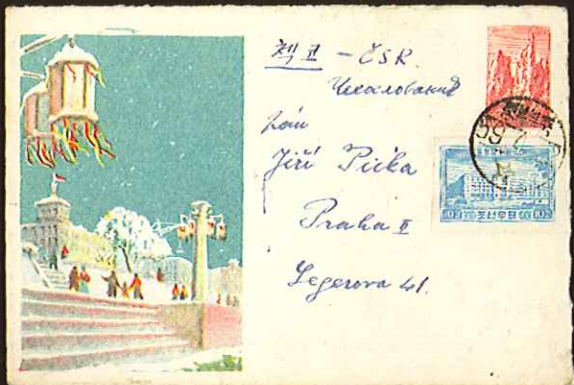 체코 - ČSR.
Чехословакия
Pán
Jiří Picka
Praha II
Legerova 41.
10원 조선우표 10원